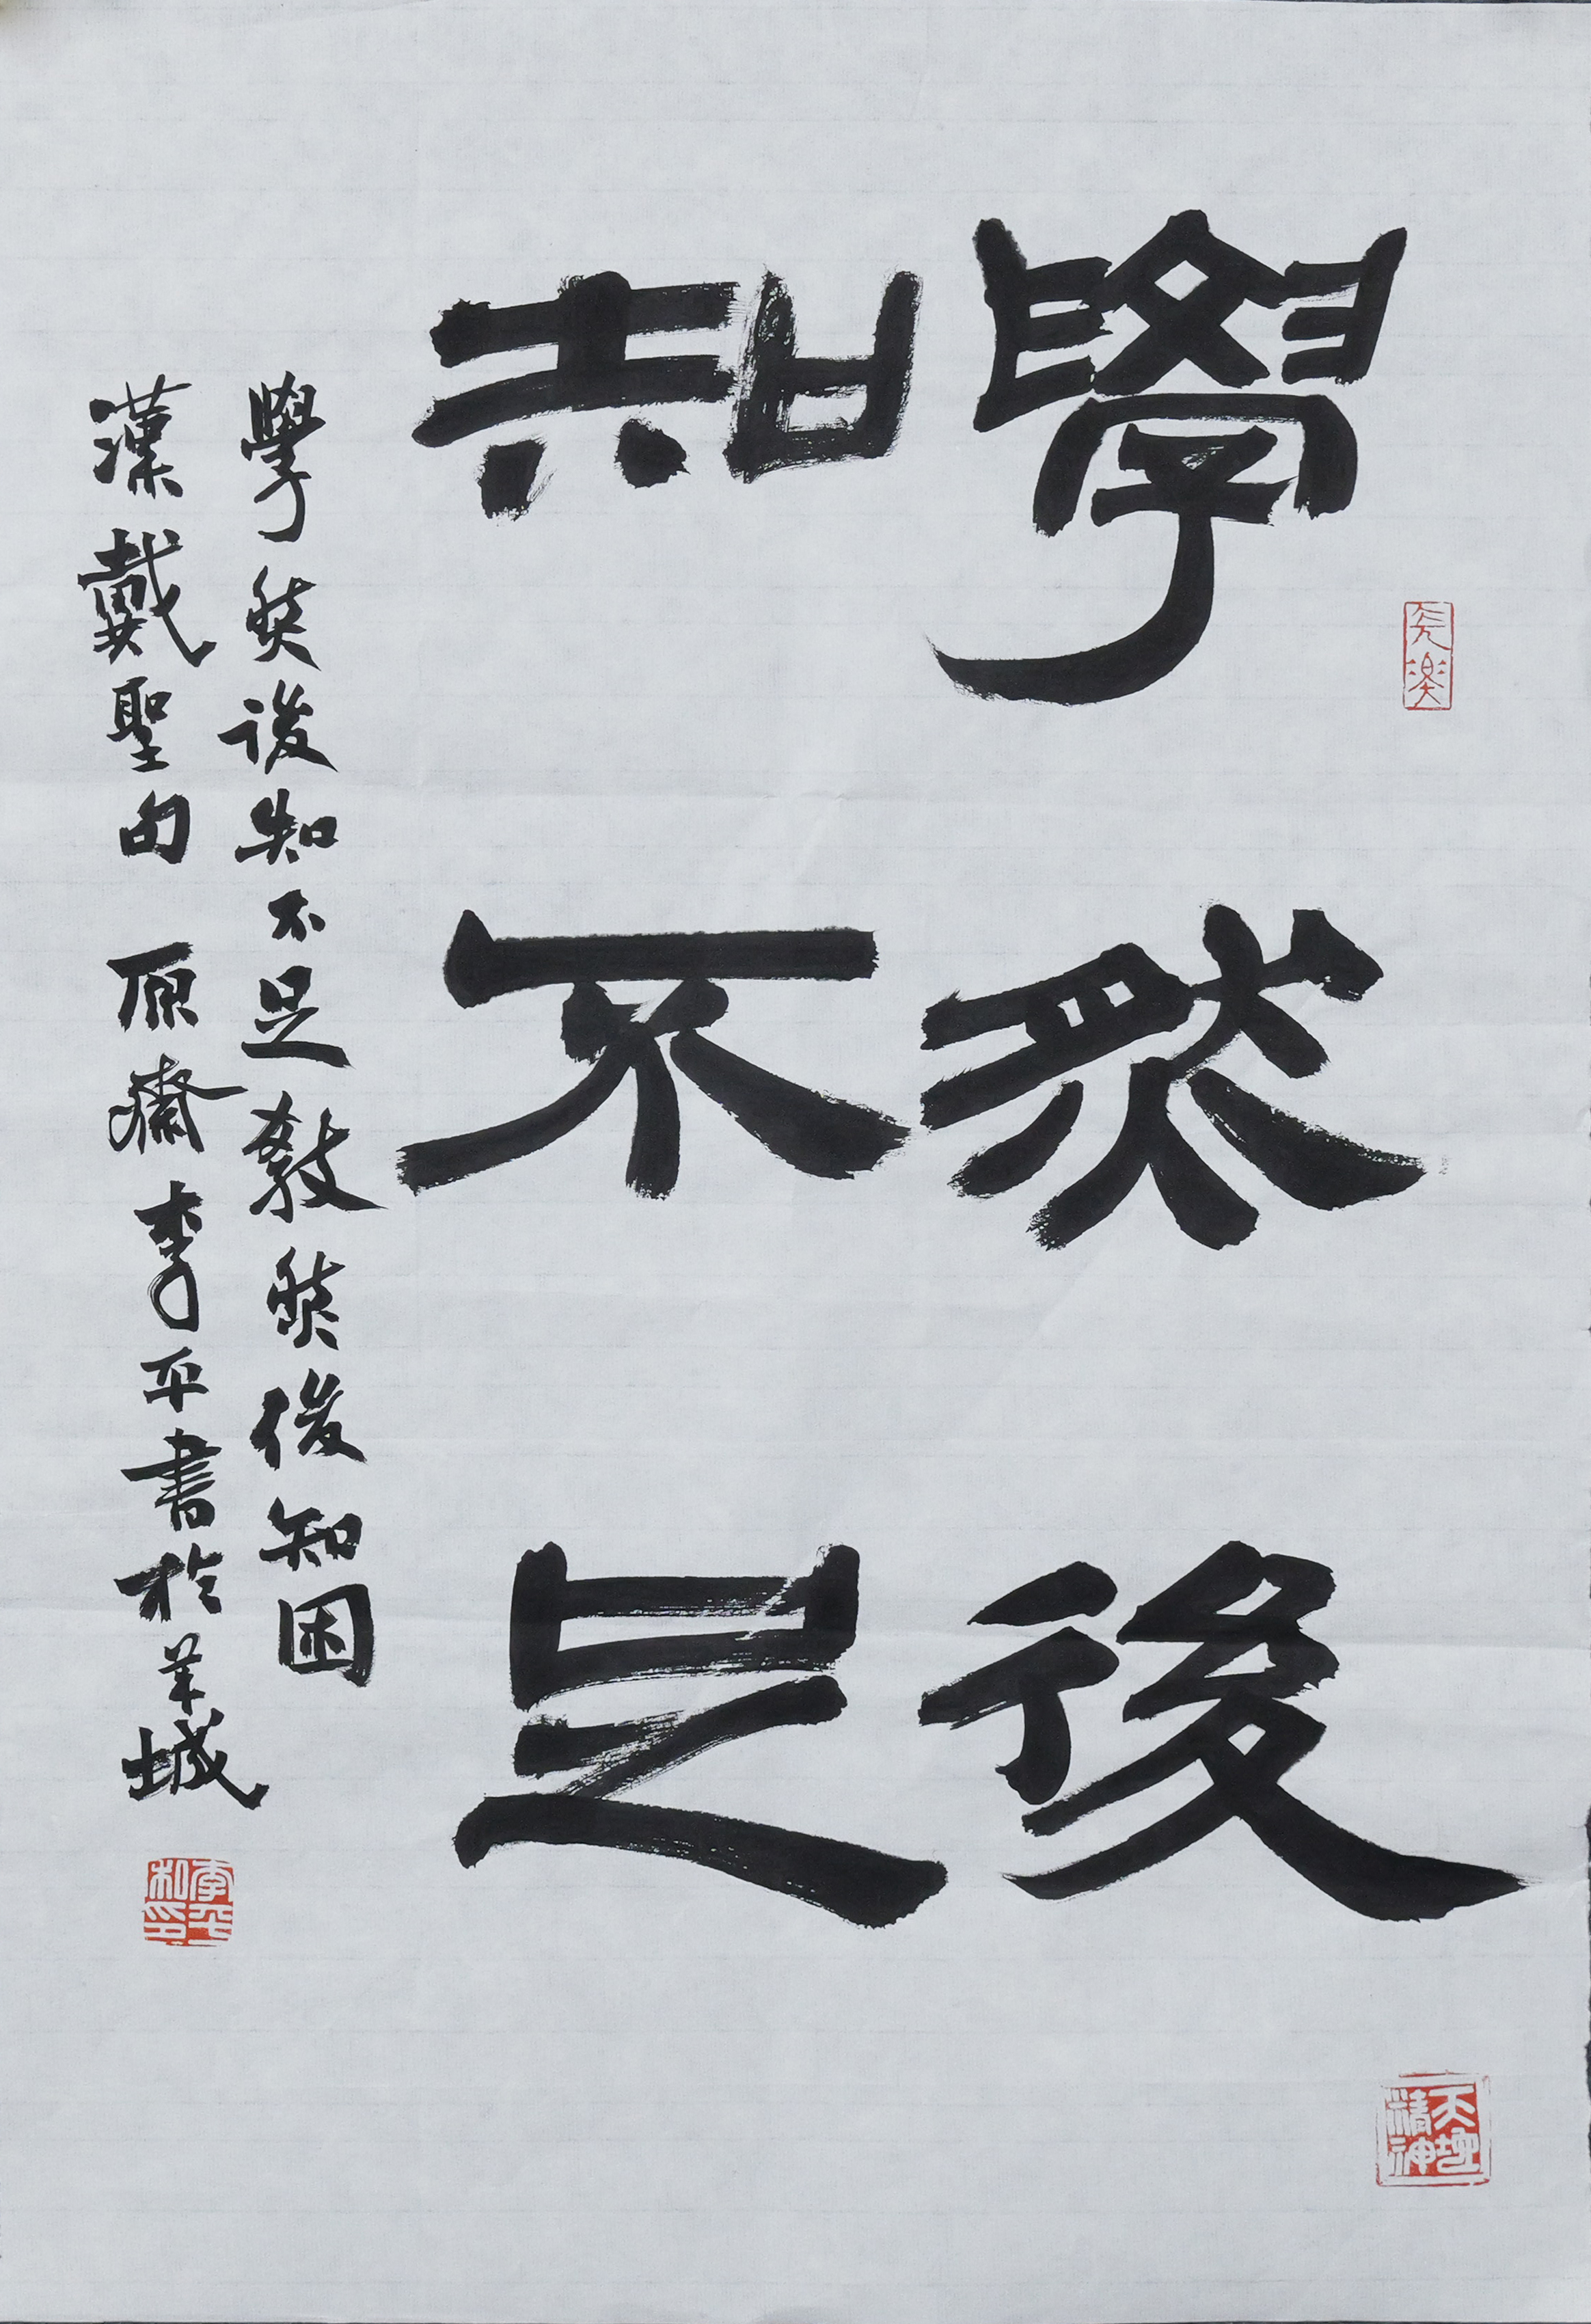 學然後
知不足
學然後知不足教然後知困
漢戴聖句 原齋李平書於羊城
李平私印
天地精神